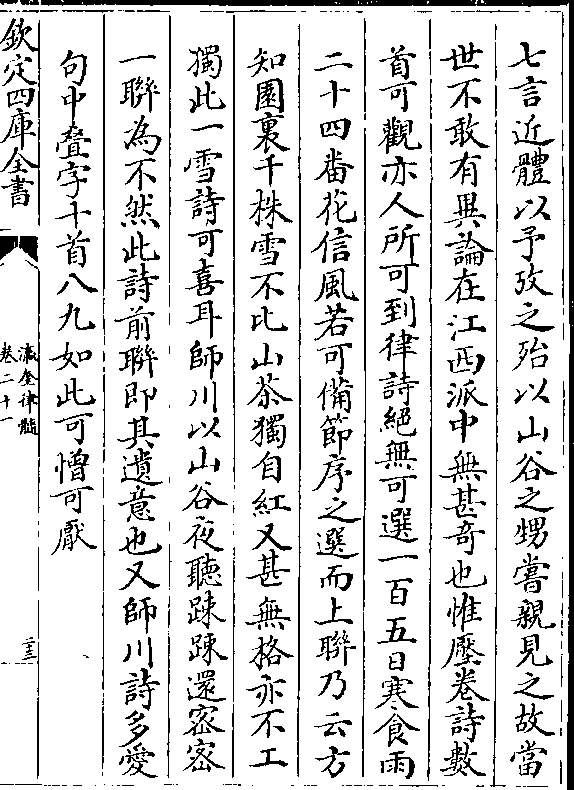 七言近體以予攷之殆以山谷之甥嘗親見之故當
世不敢有異論在江西派中無甚奇也惟壓卷詩數
首可觀亦人所可到律詩絕無可選一百五日寒食雨
二十四番花信風若可備節序之選而上聯乃云方
知園裏千株雪不比山茶獨自紅又甚無格亦不工
獨此一雪詩可喜耳師川以山谷夜聽踈踈還宻宻
一聯為不然此詩前聯即其遺意也又師川詩多愛
句中疊字十首八九如此可憎可厭
欽定四庫全書
瀛奎律髓
卷二十一
二十三